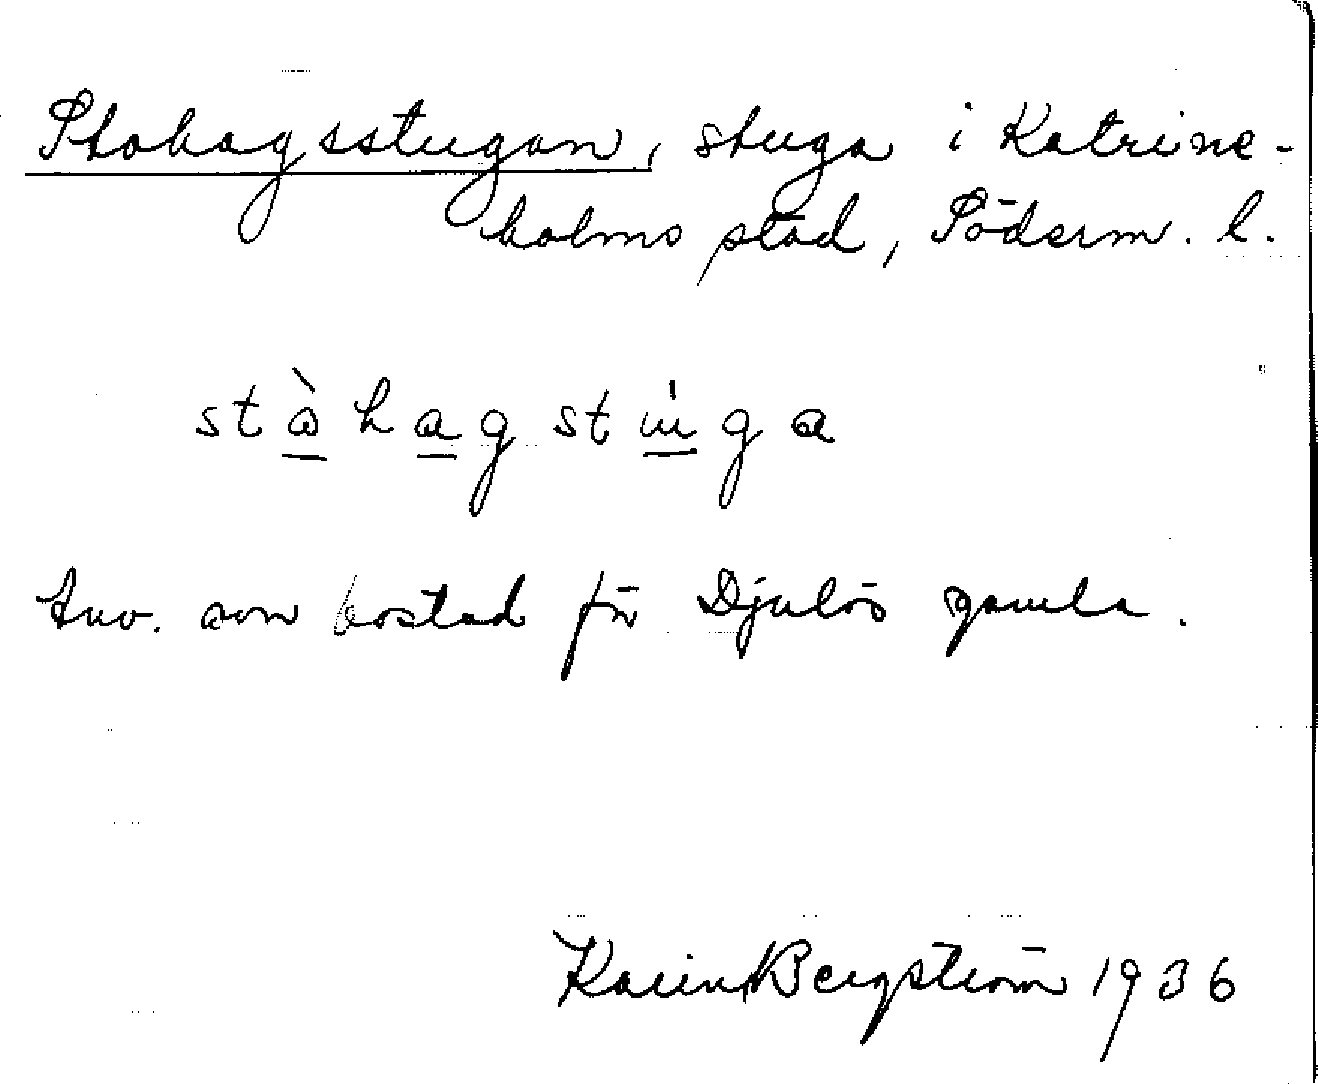 Stohagsstugan, stuga i Katrine-
holms stad, Söderm. l.
stòhagstu̇ga
Anv. som bostad för Djulös gamla.
Karin Bergström 1936